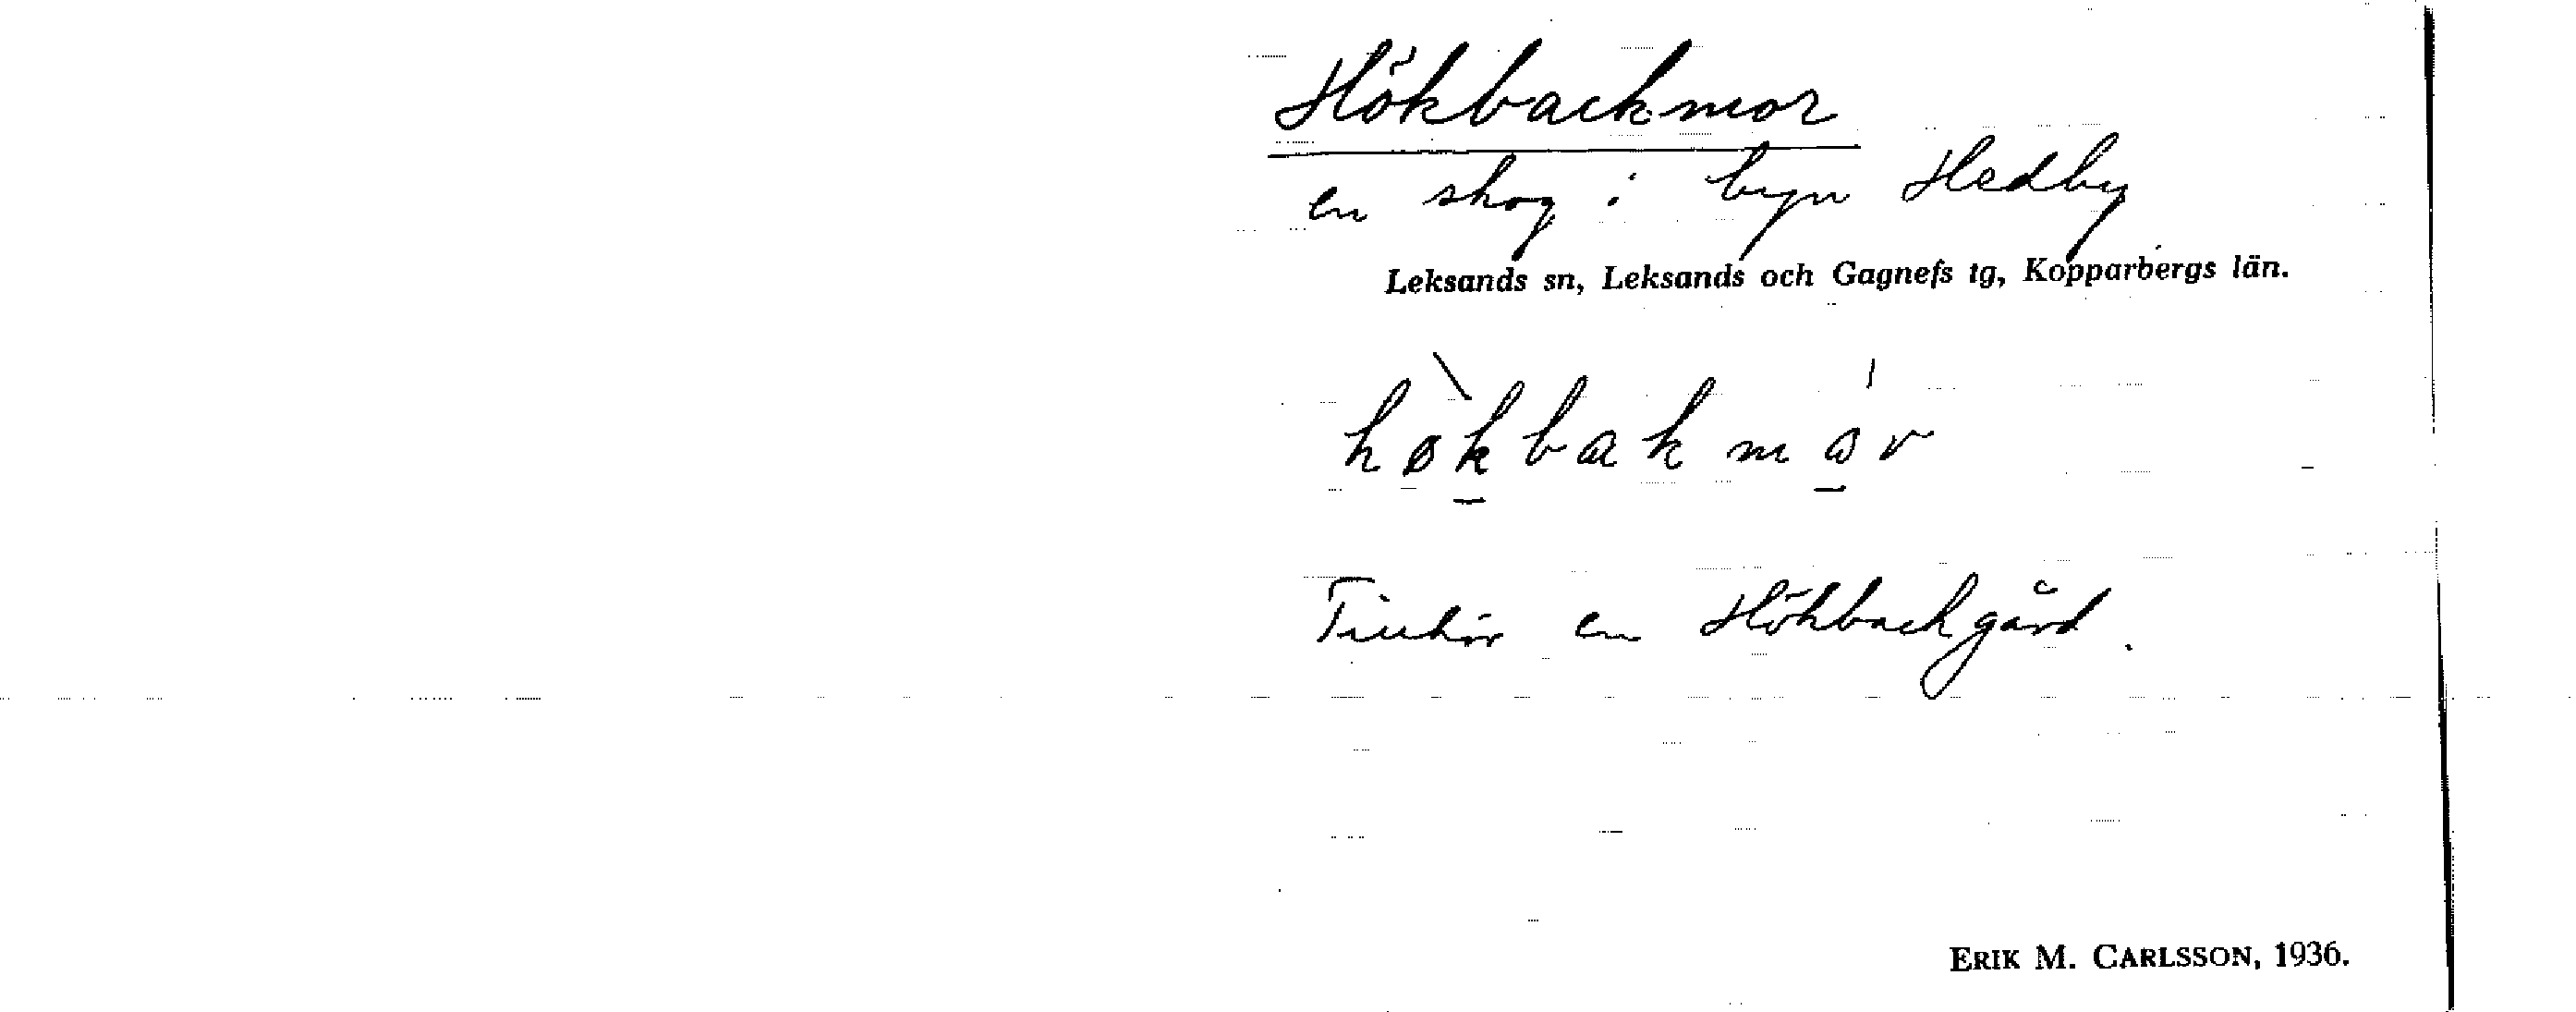 Hökbackmor
en skog i byn Hedby
Leksands sn, Leksands och Gagnefs tg, Kopparbergs län.
høkbakmɷr
Tillhör en Hökbackgård.
ERIK M. CARLSSON, 1936.